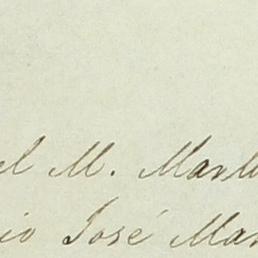 el M. Mart
io José Mar